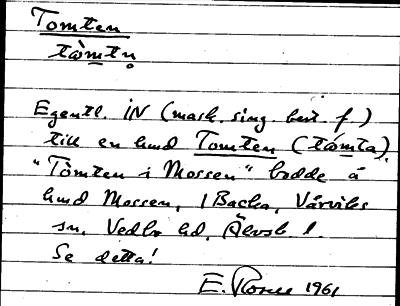 Tomten
tò̀mtn̥
Egentl. IN (mask. sing. best. f.)
till en hmd Tomten (tómta).
"Tomten i Mossen" bodde å
hmd Mossen, 1 Backa, Värviks
sn, Vedbo hd, Älvsb. l.
Se detta!
E. Rosell 1961